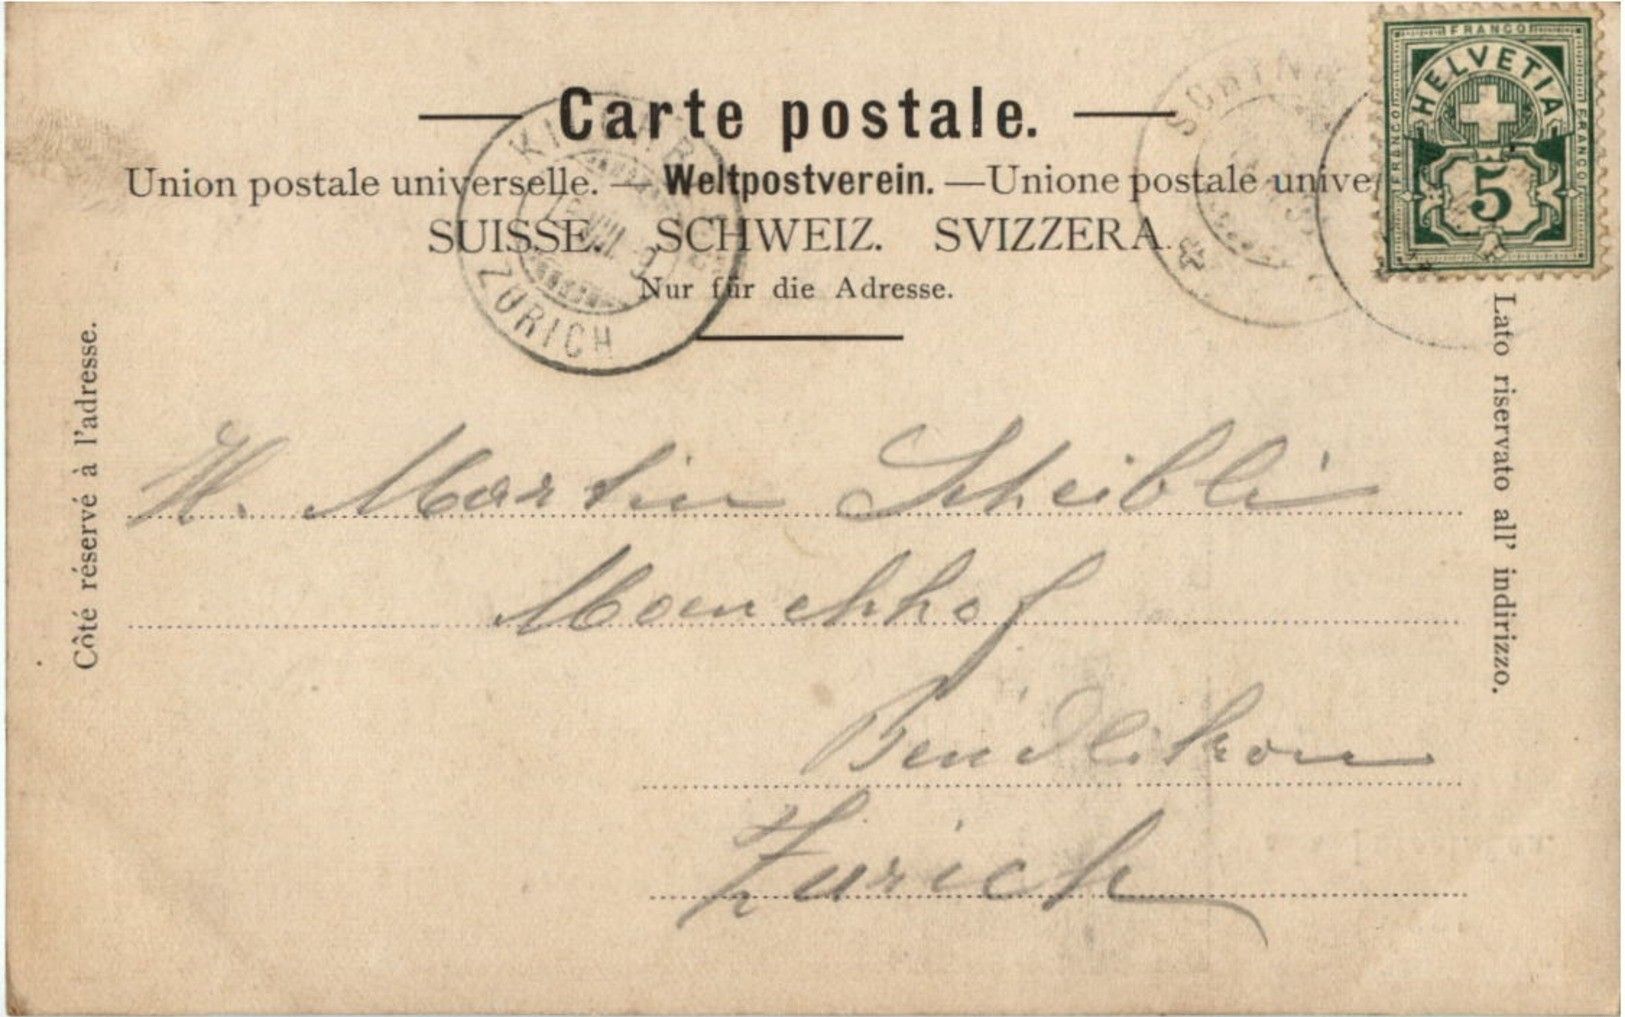 Carte postale.
Union postale universelle. — Weltpostverein. — Unione postale unive
SUISSE. SCHWEIZ. SVIZZERA.
Nur für die Adresse.
FRANCO
HELVETIA
FRANCO
FRANCO
5
ZÜRICH
Côté réservé à l'adresse.
Lato riservato all' indirizzo.
H. Martin Scheibli
Moenchhof
Bendlikon
Zürich